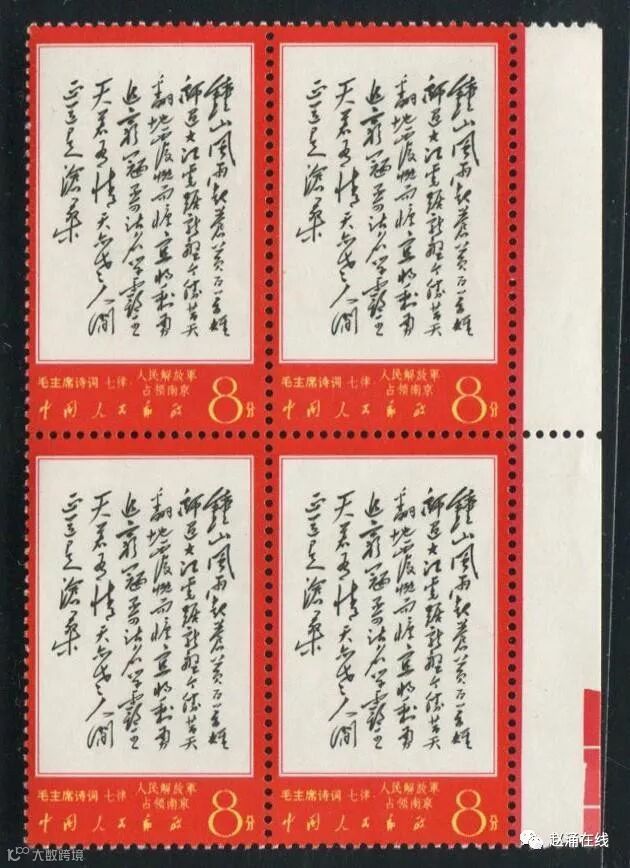 鍾山風雨起蒼黄百万雄
師过大江虎踞龍盤今勝昔天
翻地覆慨而慷宜将剩勇
追窮寇不可沽名学霸王
天若有情天亦老人间
正道是滄桑
毛主席诗词 七律·人民解放軍
占领南京
中国人民邮政 8分
鍾山風雨起蒼黄百万雄
師过大江虎踞龍盤今勝昔天
翻地覆慨而慷宜将剩勇
追窮寇不可沽名学霸王
天若有情天亦老人间
正道是滄桑
毛主席诗词 七律·人民解放軍
占领南京
中国人民邮政 8分
鍾山風雨起蒼黄百万雄
師过大江虎踞龍盤今勝昔天
翻地覆慨而慷宜将剩勇
追窮寇不可沽名学霸王
天若有情天亦老人间
正道是滄桑
毛主席诗词 七律·人民解放軍
占领南京
中国人民邮政 8分
鍾山風雨起蒼黄百万雄
師过大江虎踞龍盤今勝昔天
翻地覆慨而慷宜将剩勇
追窮寇不可沽名学霸王
天若有情天亦老人间
正道是滄桑
毛主席诗词 七律·人民解放軍
占领南京
中国人民邮政 8分
大数跨境
赵涌在线